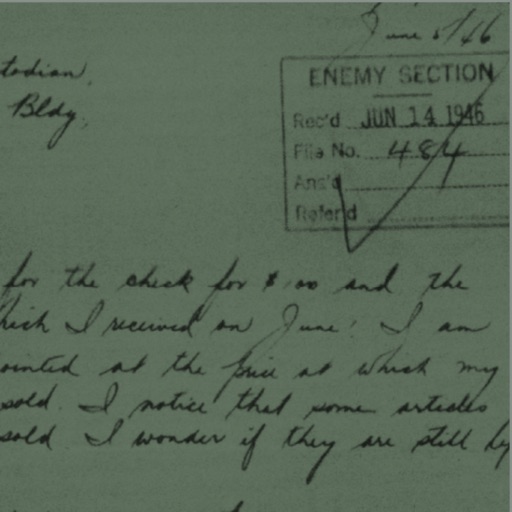 June 5/46
todian,
ENEMY SECTION
Bldg.
Rec'd JUN 14 1946
File No. 484
Ans'd
Refer'd
for the check for $ .00 and the
hich I received on June I am
ointed at the price at which my
sold. I notice that some articles
sold I wonder if they are still by